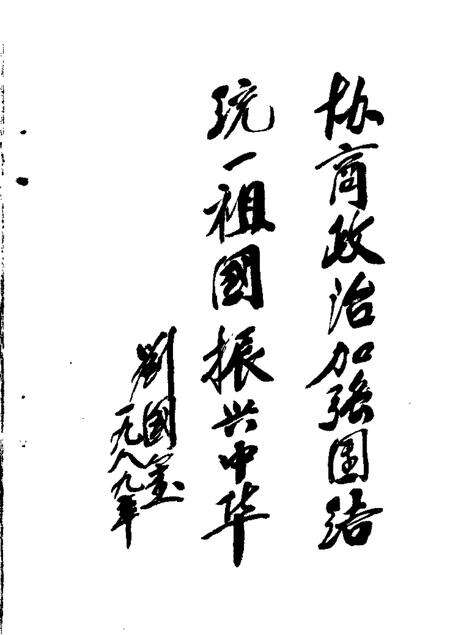 协商政治加强团结
统一祖國振兴中华
劉國
一九八九年